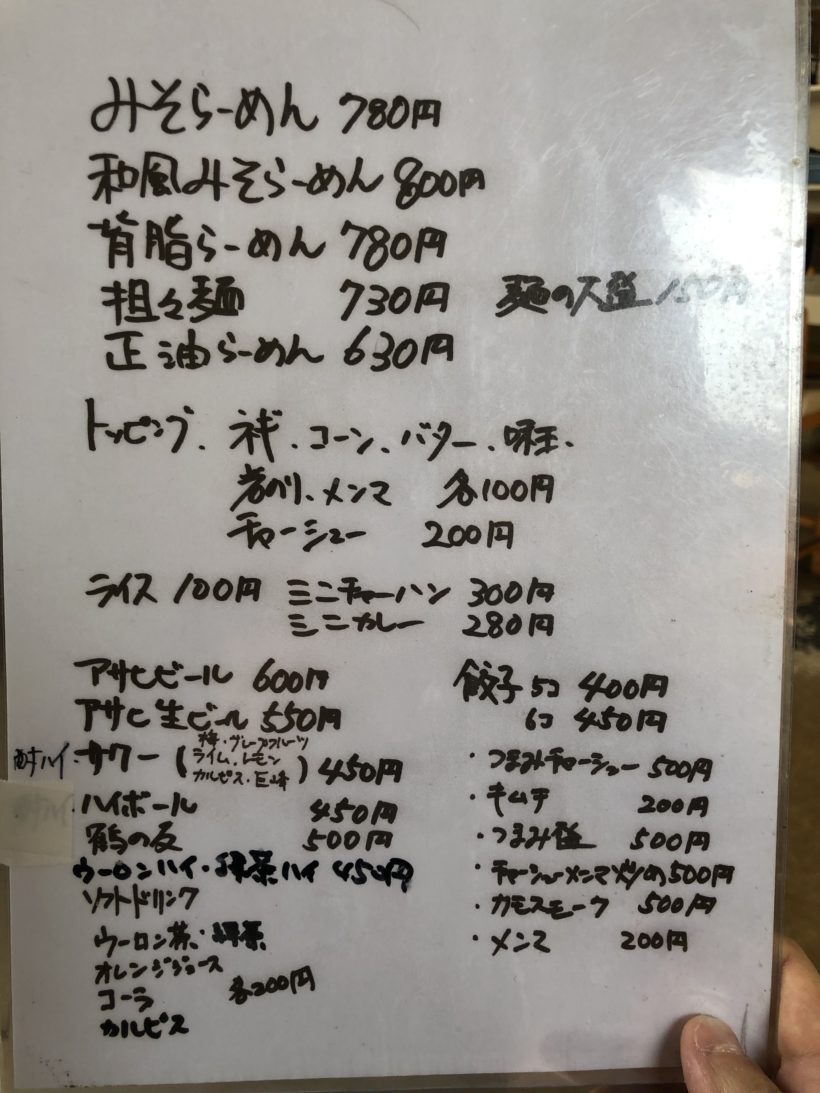 みそらーめん 780円
和風みそらーめん 800円
背脂らーめん 780円
担々麺 730円 麺の大盛 150円
正油らーめん 630円
トッピング、ネギ、コーン、バター、味玉、
岩のり、メンマ 各100円
チャーシュー 200円
ライス 100円 ミニチャーハン 300円
ミニカレー 280円
アサヒビール 600円
アサヒ生ビール 550円
酎ハイ・サワー(梅・グレープフルーツ
ライム・レモン
カルピス・巨峰) 450円
ハイボール 450円
鶴の友 500円
ウーロンハイ・緑茶ハイ 450円
ソフトドリンク
ウーロン茶・緑茶
オレンジジュース
コーラ 各200円
カルピス
餃子 5コ 400円
6コ 450円
・つまみチャーシュー 500円
・キムチ 200円
・つまみ盛 500円
・チャーシューメンマ炒め 500円
・カモスモーク 500円
・メンマ 200円